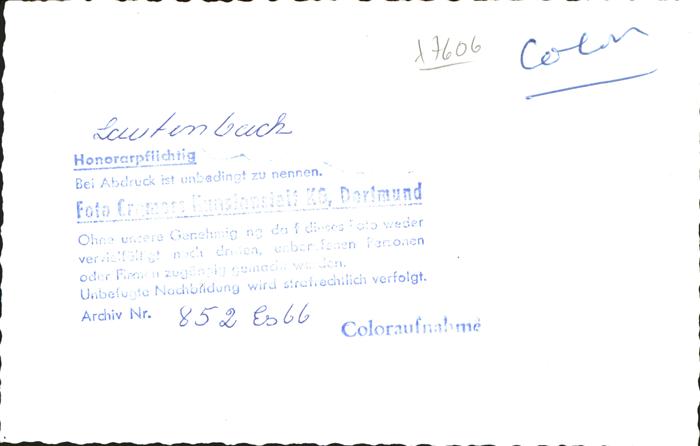 17606
Color
Lautenbach
Honorarpflichtig
Bei Abdruck ist unbedingt zu nennen.
Foto Cramers Kunstanstalt KG, Dortmund
Ohne unsere Genehmigung darf dieses Foto weder
vervielfältigt noch dritten, unberufenen Personen
oder Firmen zugängig gemacht werden.
Unbefugte Nachbildung wird strafrechtlich verfolgt.
Archiv Nr. 852 Es 66
Coloraufnahme